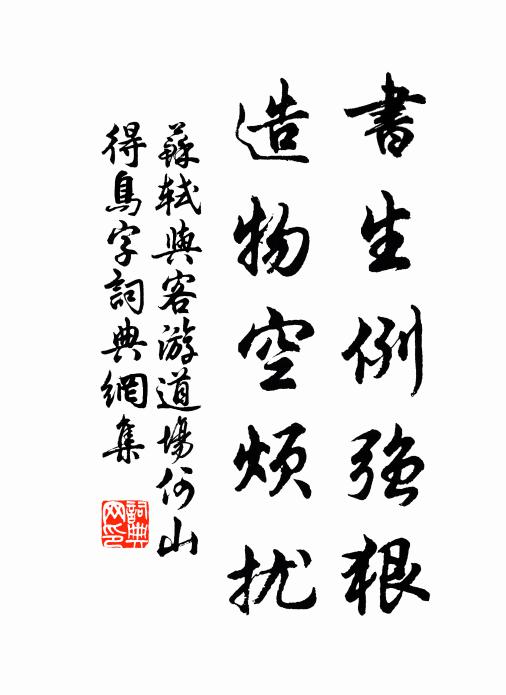 書生例強狠
造物空煩扰
蘇軾與客游道場何山
得鳥字詞典網集
詞典网印